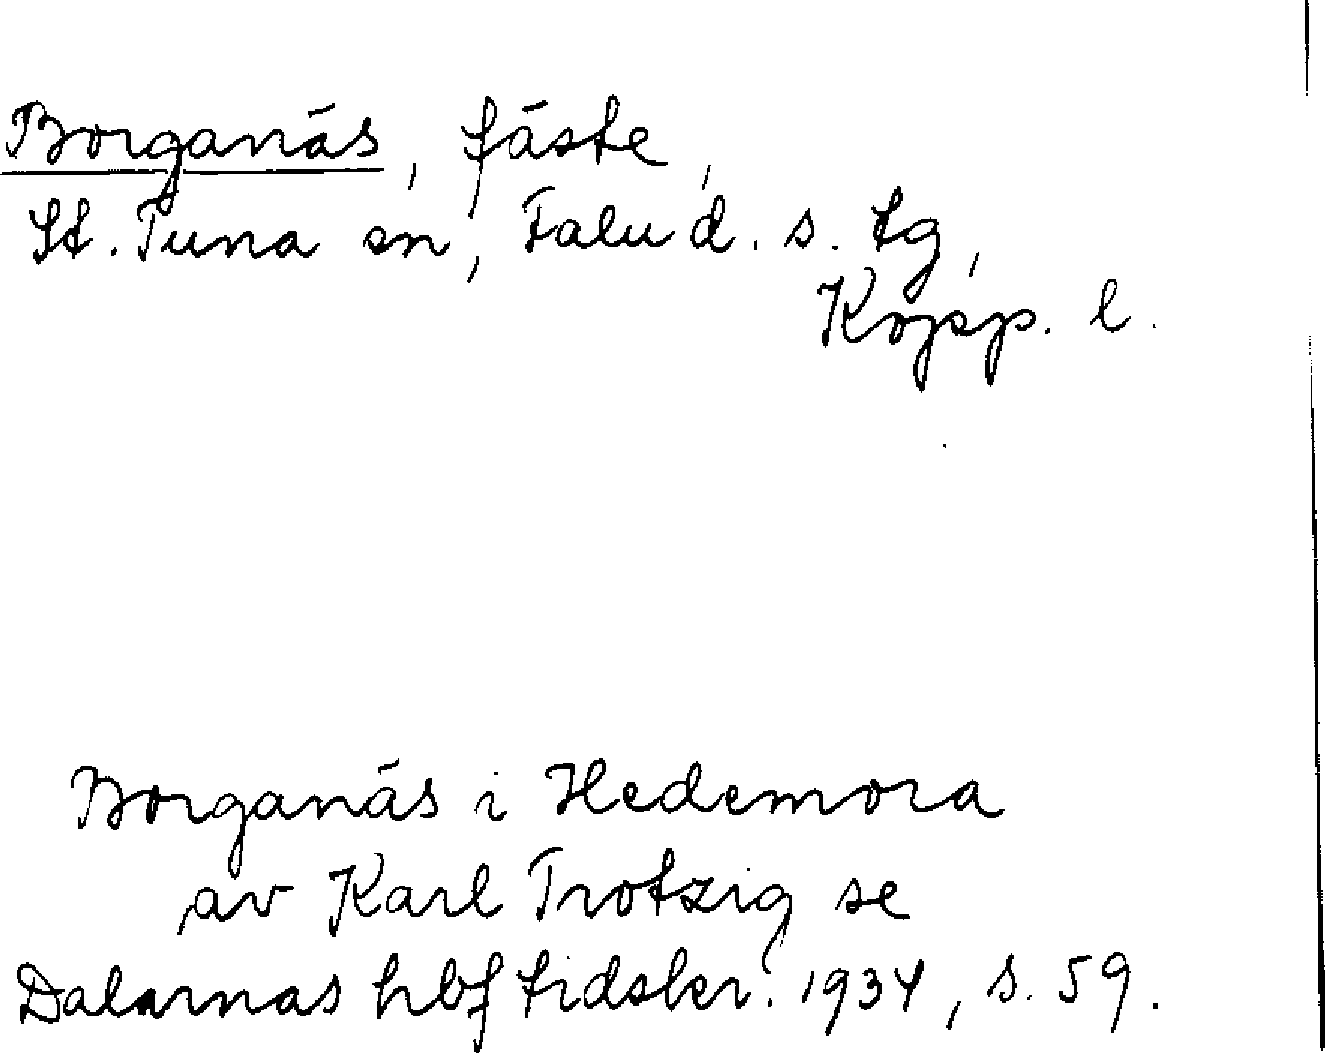 Borganäs, fäste,
St. Tuna sn, Falu d. s. tg,
Kopp. l.
Borganäs i Hedemora
av Karl Trotzig se
Dalarnas hbf tidskr. 1934, s. 59.